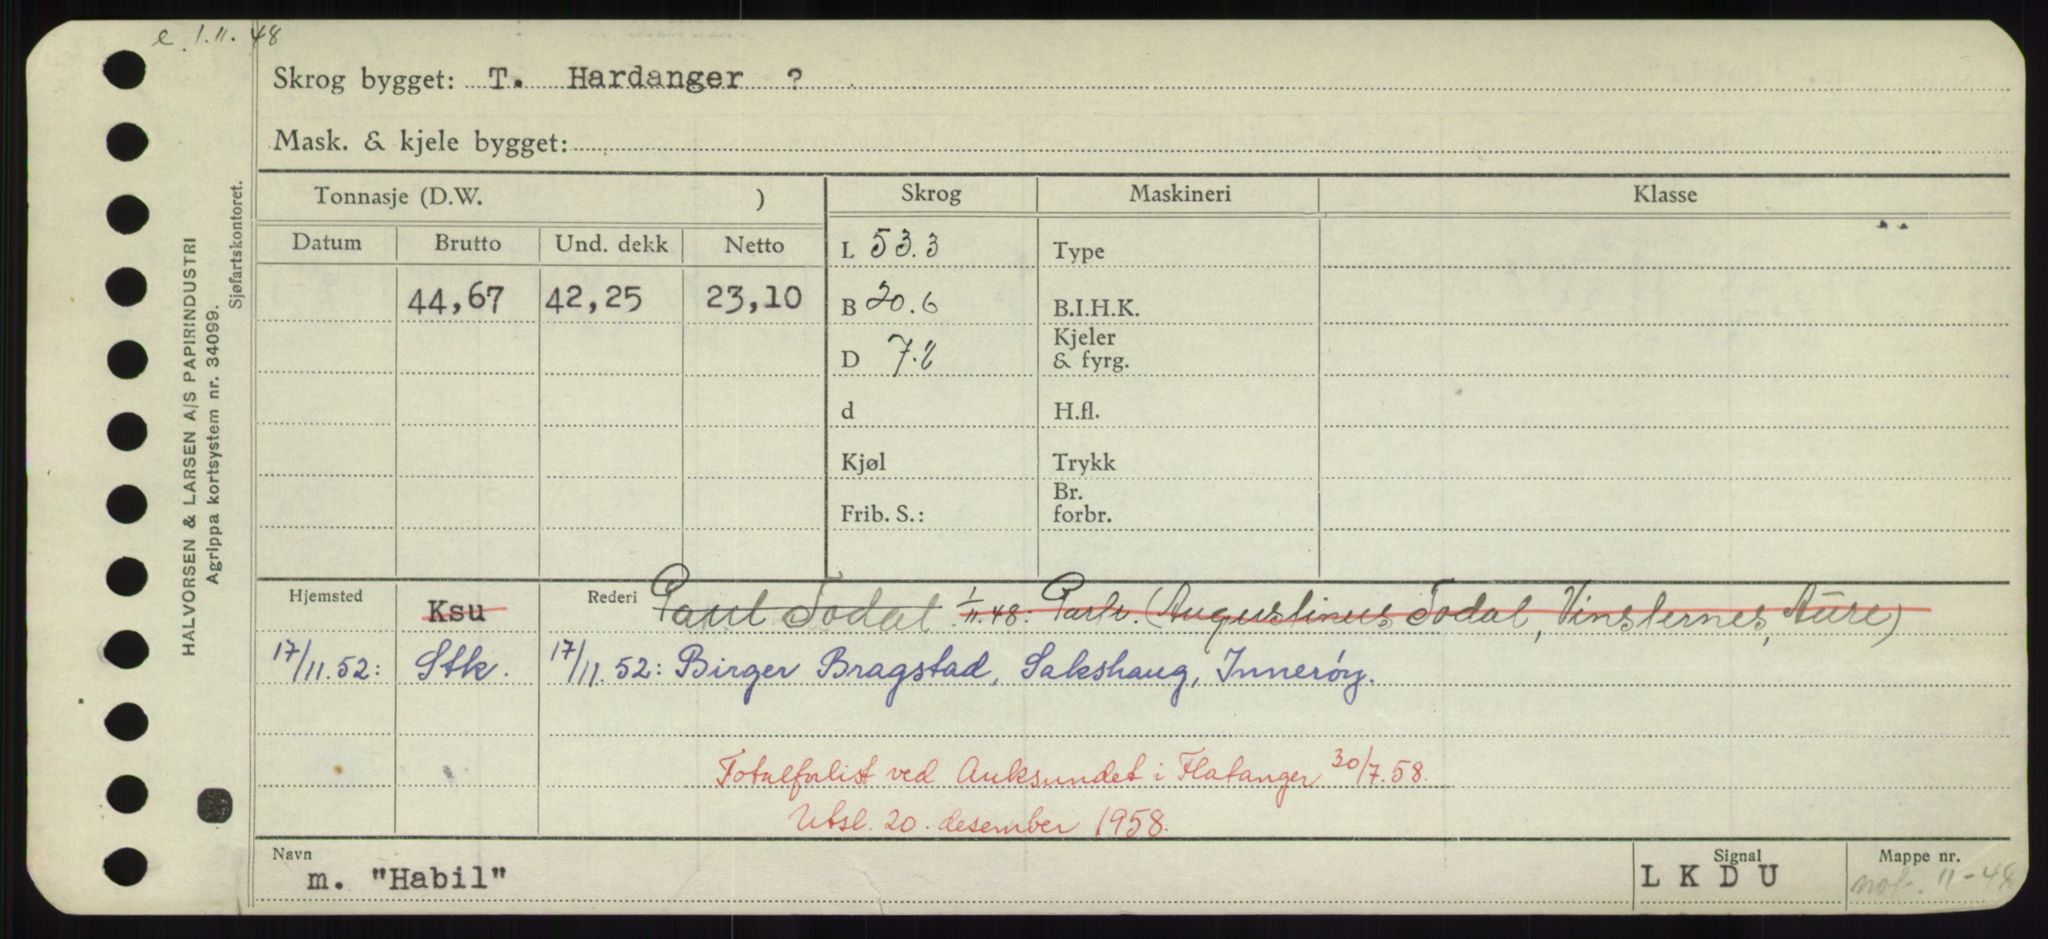 e. 1.11.48
Skrog bygget: T. Hardanger ?
Mask. & kjele bygget:
HALVORSEN & LARSEN A/S PAPIRINDUSTRI
Agrippa kortsystem nr. 34099.
Sjøfartskontoret.
Tonnasje (D.W. ) Skrog Maskineri Klasse
Datum Brutto Und. dekk Netto L 53.3 Type
44,67 42,25 23,10 B 20.6 B.I.H.K.
D 7.2 Kjeler & fyrg.
d H.fl.
Kjøl Trykk
Frib. S.: Br. forbr.
Hjemsted Ksu Rederi Paul Todal 1/11.48: Partr. (Augustinus Todal, Vinsternes, Aure)
17/11.52: Stk. 17/11.52: Birger Bragstad, Sakshaug, Innerøy.
Totalforlist ved Auksundet i Flatanger 30/7.58.
Utsl. 20. desember 1958.
Navn Signal Mappe nr.
m. "Habil" L K D U not. 11-48